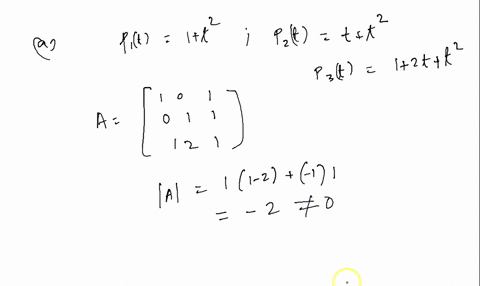 (a) P₁(t) = 1+t² ; P₂(t) = t+t²
P₃(t) = 1+2t+t²
A = [ 1 0 1
0 1 1
1 2 1 ]
|A| = 1(1-2) + (-1)1
= -2 ≠ 0